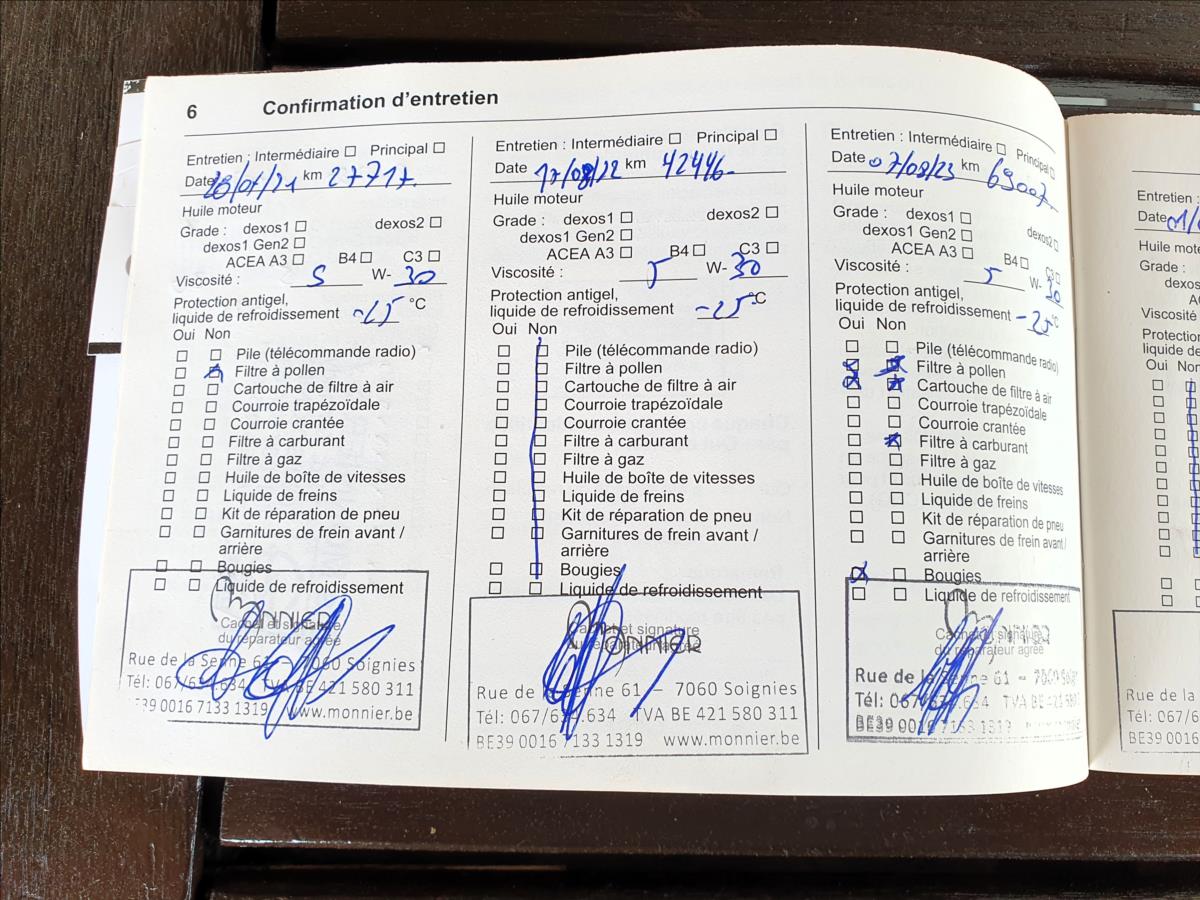 6 Confirmation d'entretien
Entretien : Intermédiaire ☐ Principal ☐
Date km 27717.
Huile moteur
Grade : dexos1 ☐ dexos2 ☐
dexos1 Gen2 ☐
ACEA A3 ☐ B4 ☐ C3 ☐
Viscosité : 5 W- 30
Protection antigel,
liquide de refroidissement -25 °C
Oui Non
Pile (télécommande radio)
Filtre à pollen
Cartouche de filtre à air
Courroie trapézoïdale
Courroie crantée
Filtre à carburant
Filtre à gaz
Huile de boîte de vitesses
Liquide de freins
Kit de réparation de pneu
Garnitures de frein avant /
arrière
Bougies
Liquide de refroidissement
Monnier
Cachet et signature
du réparateur agréé
Rue de la Senne 61 – 7060 Soignies
Tél: 067/634.634 TVA BE 421 580 311
BE39 0016 7133 1319 www.monnier.be
Entretien : Intermédiaire ☐ Principal ☐
Date 17/08/22 km 42446.
Huile moteur
Grade : dexos1 ☐ dexos2 ☐
dexos1 Gen2 ☐
ACEA A3 ☐ B4 ☐ C3 ☐
Viscosité : 5 W- 30
Protection antigel,
liquide de refroidissement -25 °C
Oui Non
Pile (télécommande radio)
Filtre à pollen
Cartouche de filtre à air
Courroie trapézoïdale
Courroie crantée
Filtre à carburant
Filtre à gaz
Huile de boîte de vitesses
Liquide de freins
Kit de réparation de pneu
Garnitures de frein avant /
arrière
Bougies
Liquide de refroidissement
Monnier
Cachet et signature
du réparateur agréé
Rue de la Senne 61 – 7060 Soignies
Tél: 067/634.634 TVA BE 421 580 311
BE39 0016 7133 1319 www.monnier.be
Entretien : Intermédiaire ☐ Principal ☐
Date 07/08/23 km 69007
Huile moteur
Grade : dexos1 ☐ dexos2 ☐
dexos1 Gen2 ☐
ACEA A3 ☐ B4 ☐ C3 ☐
Viscosité : 5 W- 30
Protection antigel,
liquide de refroidissement -25 °C
Oui Non
Pile (télécommande radio)
Filtre à pollen
Cartouche de filtre à air
Courroie trapézoïdale
Courroie crantée
Filtre à carburant
Filtre à gaz
Huile de boîte de vitesses
Liquide de freins
Kit de réparation de pneu
Garnitures de frein avant /
arrière
Bougies
Liquide de refroidissement
Monnier
Cachet et signature
du réparateur agréé
Rue de la Senne 61 – 7060 Soignies
Tél: 067/634.634 TVA BE 421 580
BE39 0016 7133 1319
Entretien :
Date
Huile mote
Grade :
dexos
Viscosité
Protection
liquide de
Oui Non
Rue de la
Tél: 067/6
BE39 001